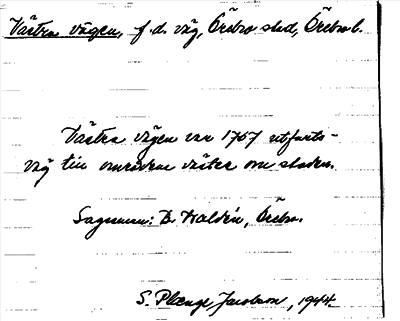 Västra vägen, f.d. väg, Örebro stad, Örebro l.
Västra vägen var 1757 utfarts-
väg till områdena väster om staden.
Sagesman: B. Waldén, Örebro.
S. Plænge Jacobson, 1944.